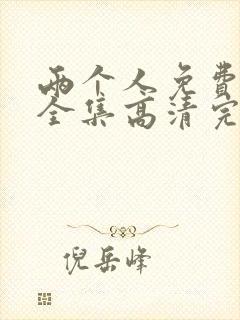 两个人免费
全集高清完
倪岳峰